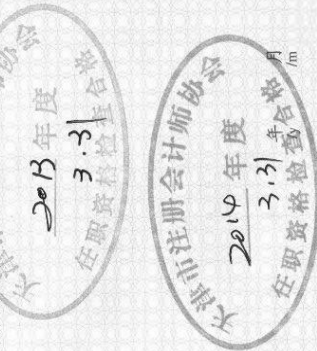 天津市注册会计师协会
2013 年度
3.31
任职资格检查合格
天津市注册会计师协会
2014 年度
3.31
任职资格检查合格
年 月
/m